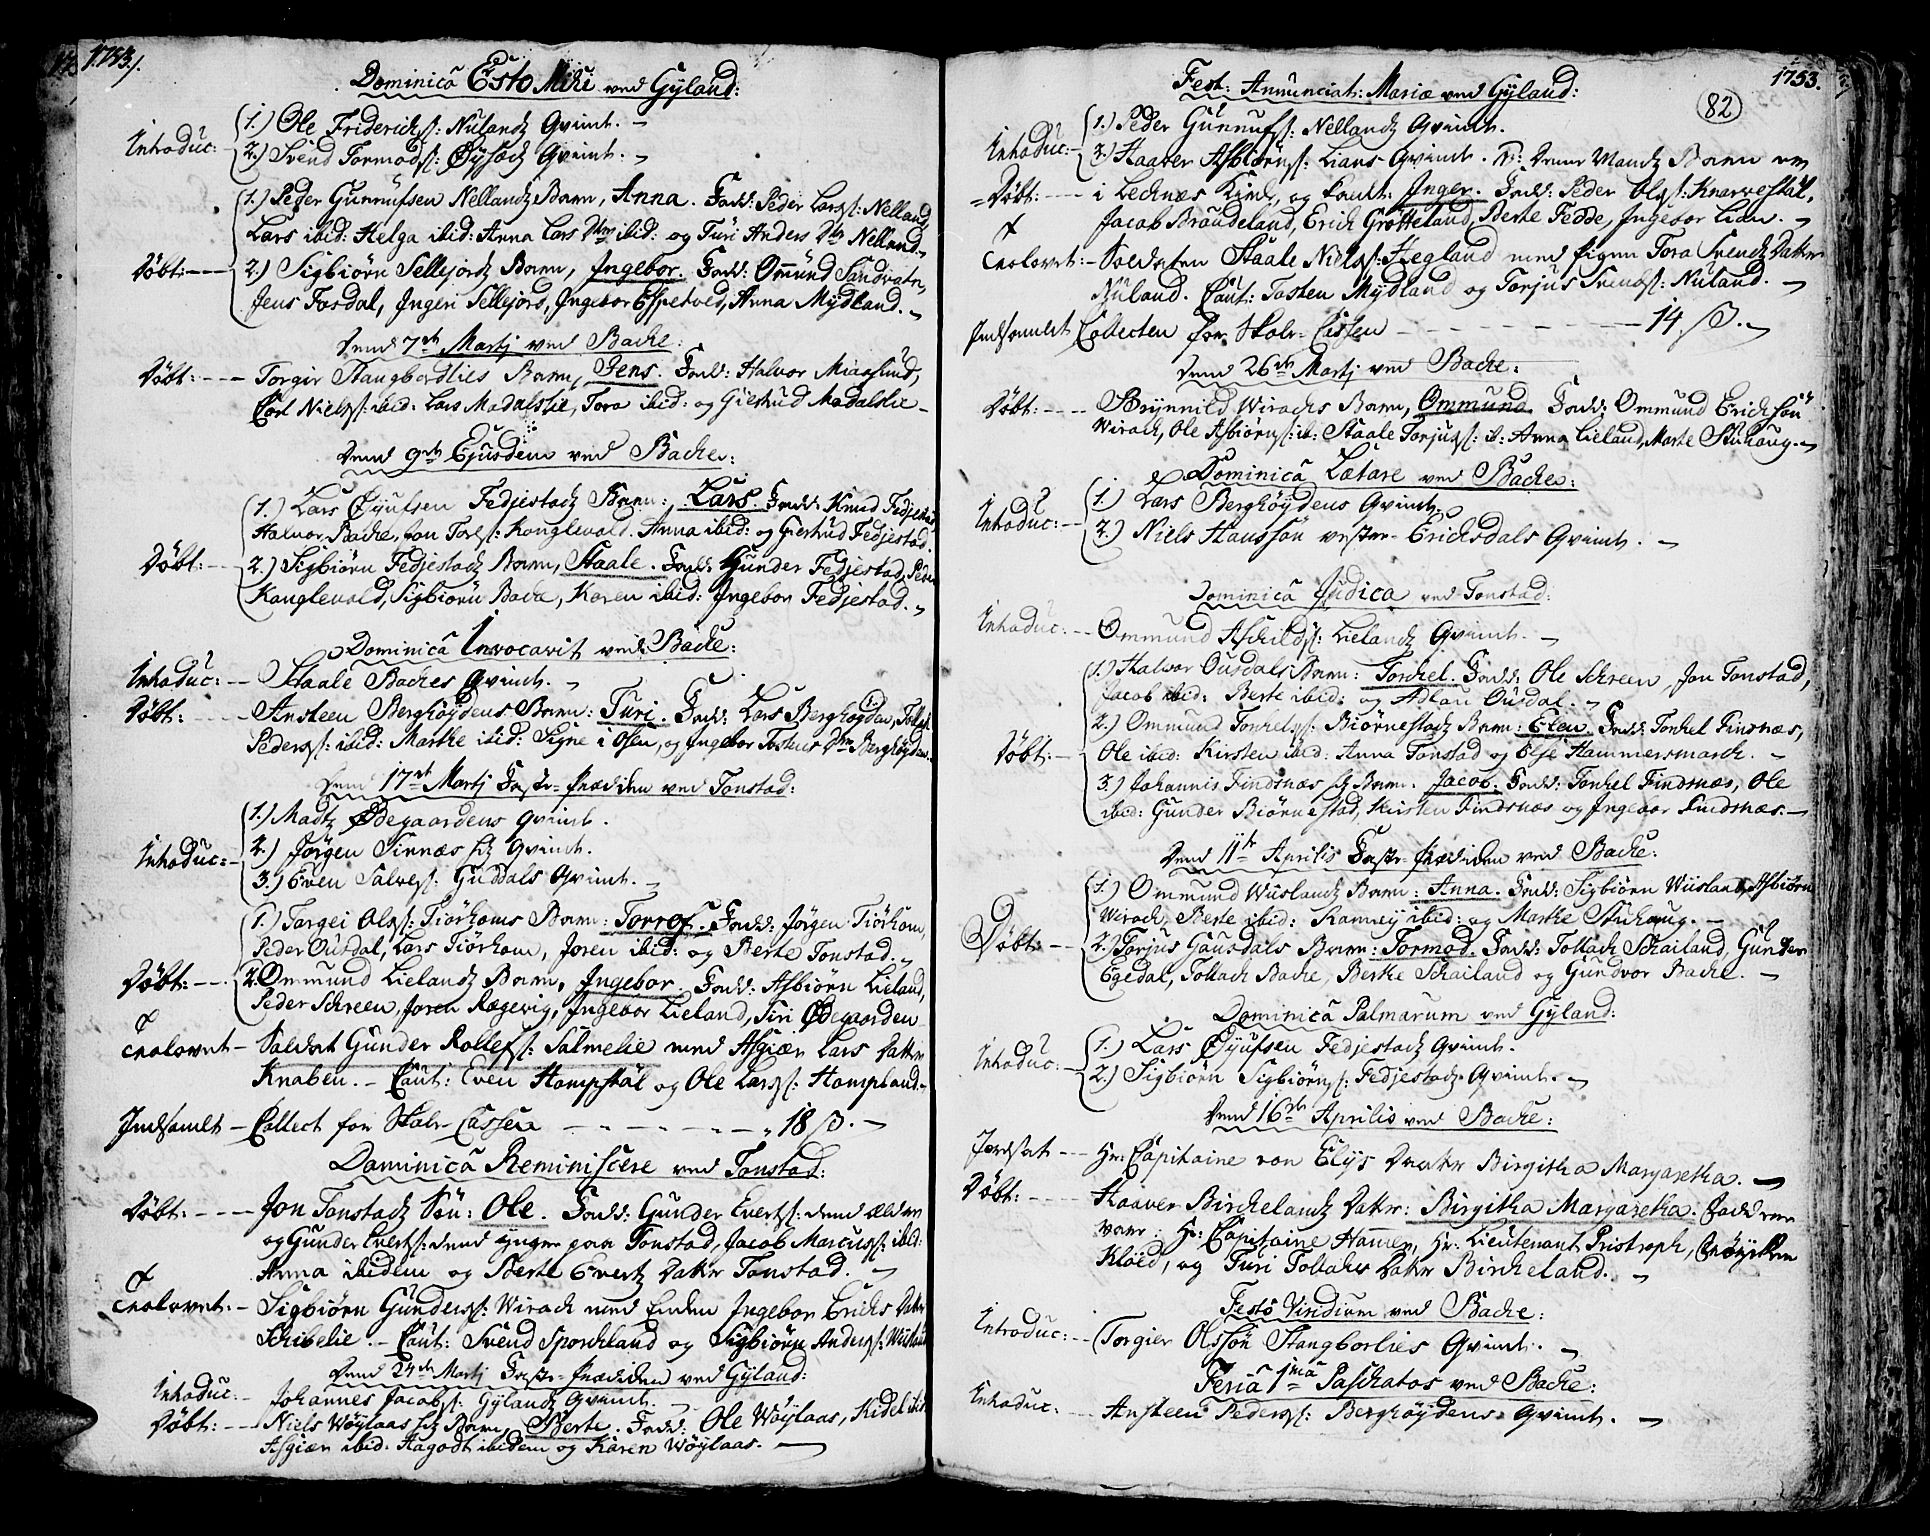 1753.
Dominica Esto Mihi ved Gyland:
Introduc: 1.) Ole Friderichs: Nulands Qvinde.
2.) Svend Tormods: Øysads Qvinde.
1.) Peder Gunnufsen Nellands Barn, Anna. Fadd: Peder Lars: Nelland,
Lars ibid: Helga ibid: Anna Lars Dtr ibid: og Turi Anders Dtr Nelland.
Døbt: 2.) Sigbiørn Sellejords Barn, Ingebor. Fadd: Ommund Sandvatn,
Jens Josdal, Inger Sellejord, Ingebor Espetved, Anna Mydland.
Dend 7de Martj ved Backe:
Døbt: Torgir Stangbordlies Barn, Jens. Fadd: Halvor Miaasund,
Carl Niels: ibid: Lars Madalslie, Tora ibid: og Giertrud Madalslie
Dend 9de Ejusdem ved Backe:
1.) Lars Øyufsen Fedjestads Barn: Lars. Fadd: Knud Fedjestad
Halvor Backe, Jon Tors: Konglevold. Anna ibid: og Giertrud Fedjestad.
Døbt: 2.) Sigbiørn Fedjestads Barn, Staale. Fadd: Gunder Fedjestad, Peder
Konglevold, Sigbiørn Backe, Karen ibid: Ingebor Fedjestad.
Dominica Invocavit ved Backe:
Introduc: Staale Backes Qvinde.
Døbt: Ansteen Berghøydens Barn: Turi. Fadd: Lars Berghøyden,
Peders: ibid: Marthe ibid: Signe i Osen, og Ingebor Dtr Berghøyden.
Dend 17de Martj Faste-Prædiken ved Tonstad:
1.) Madtz Ødegaardens Qvinde.
Introduc: 2.) Jørgen Sinnæs Qvinde.
3.) Even Salves: Guddals Qvinde.
1.) Torgei Ols: Tiørhoms Barn: Torrof. Fadd: Jørgen Tiørhom,
Peder Ousdal, Lars Tiørhom, Joren ibid: og Berte Tonstad.
Døbt: 2. Ommund Lielands Barn, Ingebor. Fadd: Asbiørn Lieland,
Peder Schreen, Joren Rægevig, Ingebor Lieland, Siri Ødegaarden
&
Trolovet Soldat Gunder Rollefs: Salmelie med Asgiær Lars Datter
Knaben. Caut: Even Hompstøl og Ole Lars: Hompland.
Indsamlet Collect for Skole-Cassen 18 ß.
Dominica Reminiscere ved Tonstad:
Døbt: Jon Tonstads Søn: Ole. Fadd: Gunder Everts: dend ælder
og Gunder Everts: dend yngre paa Tonstad, Jacob Marcus: ibid:
Anna ibidem og Berte Everts Datter Tonstad.
&
Trolovet: Sigbiørn Gunders: Wirach med Enken Ingebor Erichs Datter
Schibelie. Caut: Svend Sporchland og Sigbiørn Anders: Wiisland
Dend 24de Martj Faste-Prædiken ved Gyland:
Introduc: Johannes Jacobs: Gylands Qvinde.
Døbt: Niels Wøylaas Barn, Berte. Fadd: Ole Wøylaas, Kidel ibid
Asgiær ibid: Aagodt ibidem og Karen Wøylaas.
1753.
82
Fest: Annunciat: Mariæ ved Gyland:
1.) Peder Gunnufs: Nellands Qvinde.
Introduc: 2.) Haaver Asbiørns: Lians Qvinde. Denne Mands Barn er
Døbt: i Lechnæs Kirke, og kaldt: Inger. Fadd: Peder Ols: Knarvestøl,
&
Jacob Braudeland, Erich Grotteland, Berte Fedde, Ingebor Lian.
Trolovet: Soldaten Staale Niels: Hegland med Pigen Tora Svends Datter
Nuland. Caut: Tosten Mydland og Torjus Svends: Nuland.
Indsamlet Collecten for Skole-Cassen 14 ß.
Dend 26de Martj ved Backe:
Døbt: Brynnild Wirachs Barn, Ommund. Fadd: Ommund Erichsøn
Wirach, Ole Asbiørns: ib: Staale Torjus: ib: Anna Lieland, Marte Stuhaug.
Dominica Lætare ved Backe:
Introduc: 1.) Lars Berghøydens Qvinde.
2.) Niels Hanssøn vester-Erichsdals Qvinde.
Dominica Judica ved Tonstad:
Introduc: Ommund Aschilds: Lielands Qvinde.
1.) Halvor Ousdals Barn: Torchel. Fadd: Ole Schreen, Jon Tonstad,
Jacob ibid: Berte ibid: og Adlau Ousdal.
2.) Ommund Torkels: Biørnestads Barn: Elen. Fadd: Torkel Findsnæs,
Døbt: Ole ibid: Kirsten ibid: Anna Tonstad og Else Hammersmark.
3.) Johannis Findsnæs Barn. Jacob. Fadd: Torkel Findsnæs, Ole
ibid: Gunder Biørnestad, Kirsten Findsnæs og Ingebor Findsnæs.
Dend 11te Aprilis Faste-Prædiken ved Backe:
1.) Ommund Wiislands Barn: Anna. Fadd: Sigbiørn Wiisland, Asbiørn
Wirach, Berte ibid: Ranney ibid: og Marthe Stuhaug.
Døbt: 2.) Torjus Gausdals Barn: Tormod. Fadd: Tollach Schailand, Gunder
Egedal, Tollach Backe, Berthe Schailand og Gundvor Backe.
Dominica Palmarum ved Gyland:
Introduc: 1.) Lars Øyufsen Fedjestads Qvinde.
2.) Sigbiørn Sigbiørns: Fedjestads Qvinde.
Dend 16de Aprilis ved Backe:
Jordsat Hr: Capitaine von Elys Datter Birgitha Margaretha.
Døbt: Haaver Birchelands Datter: Birgitha Margaretha. Faddere
vare: Hr: Capitaine Hammer, Hr. Lieutenant Pristroph,
Kloed, og Turi Tollachs Datter Bircheland.
Festo Viridium ved Backe:
Introduc: Torgier Olssøn Stangborlies Qvinde.
Feria 1ma Paschatos ved Backe:
Introduc: Ansteen Peders: Berghøydens Qvinde.